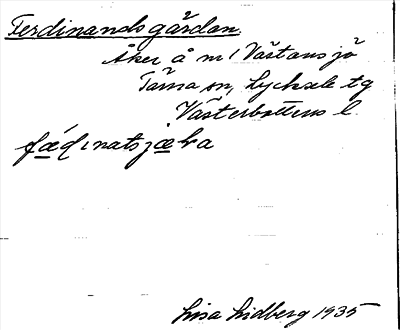 Ferdinandsgärdan
Åker å nr 1 Västansjö
Tärna sn, Lycksele tg
Västerbottens l.
Lisa Lidberg 1935